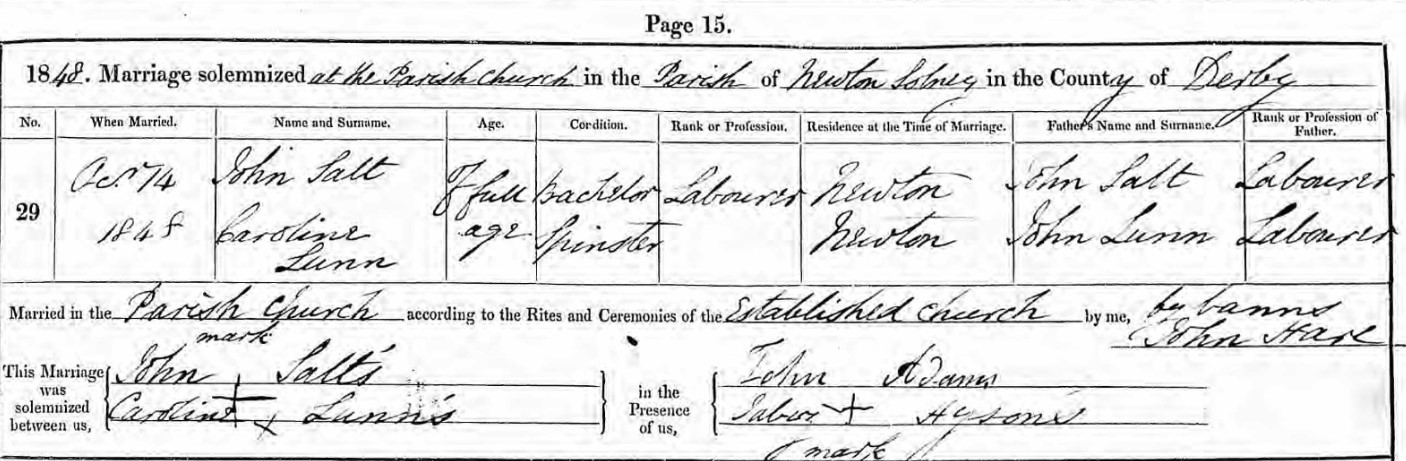 Page 15.
1848. Marriage solemnized at the Parish Church in the Parish of Newton Solney in the County of Derby
No. When Married. Name and Surname. Age. Condition. Rank or Profession. Residence at the Time of Marriage. Father's Name and Surname. Rank or Profession of Father.
29 Octr 14 John Salt Of full Bachelor Labourer Newton John Salt Labourer
1848 Caroline age Spinster Newton John Lunn Labourer
Lunn
Married in the Parish Church according to the Rites and Ceremonies of the Established Church by me, by banns
mark John Hare
This Marriage was solemnized between us, John + Salt's in the Presence of us, John Adams
Caroline + Lunn's + Hyson's
mark